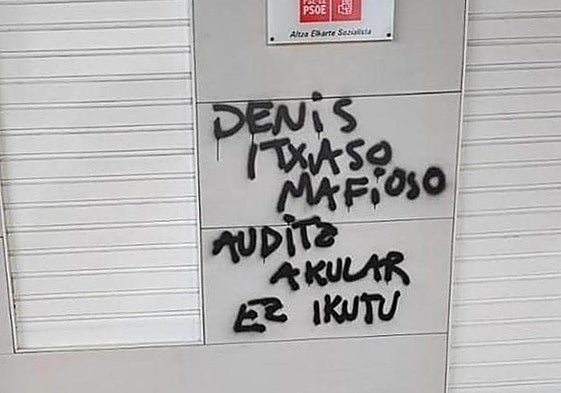 PSE-EE
PSOE
Altza Elkarte Sozialista
DENIS
ITXASO
MAFIOSO
AUDITZ
AKULAR
EZ IKUTU